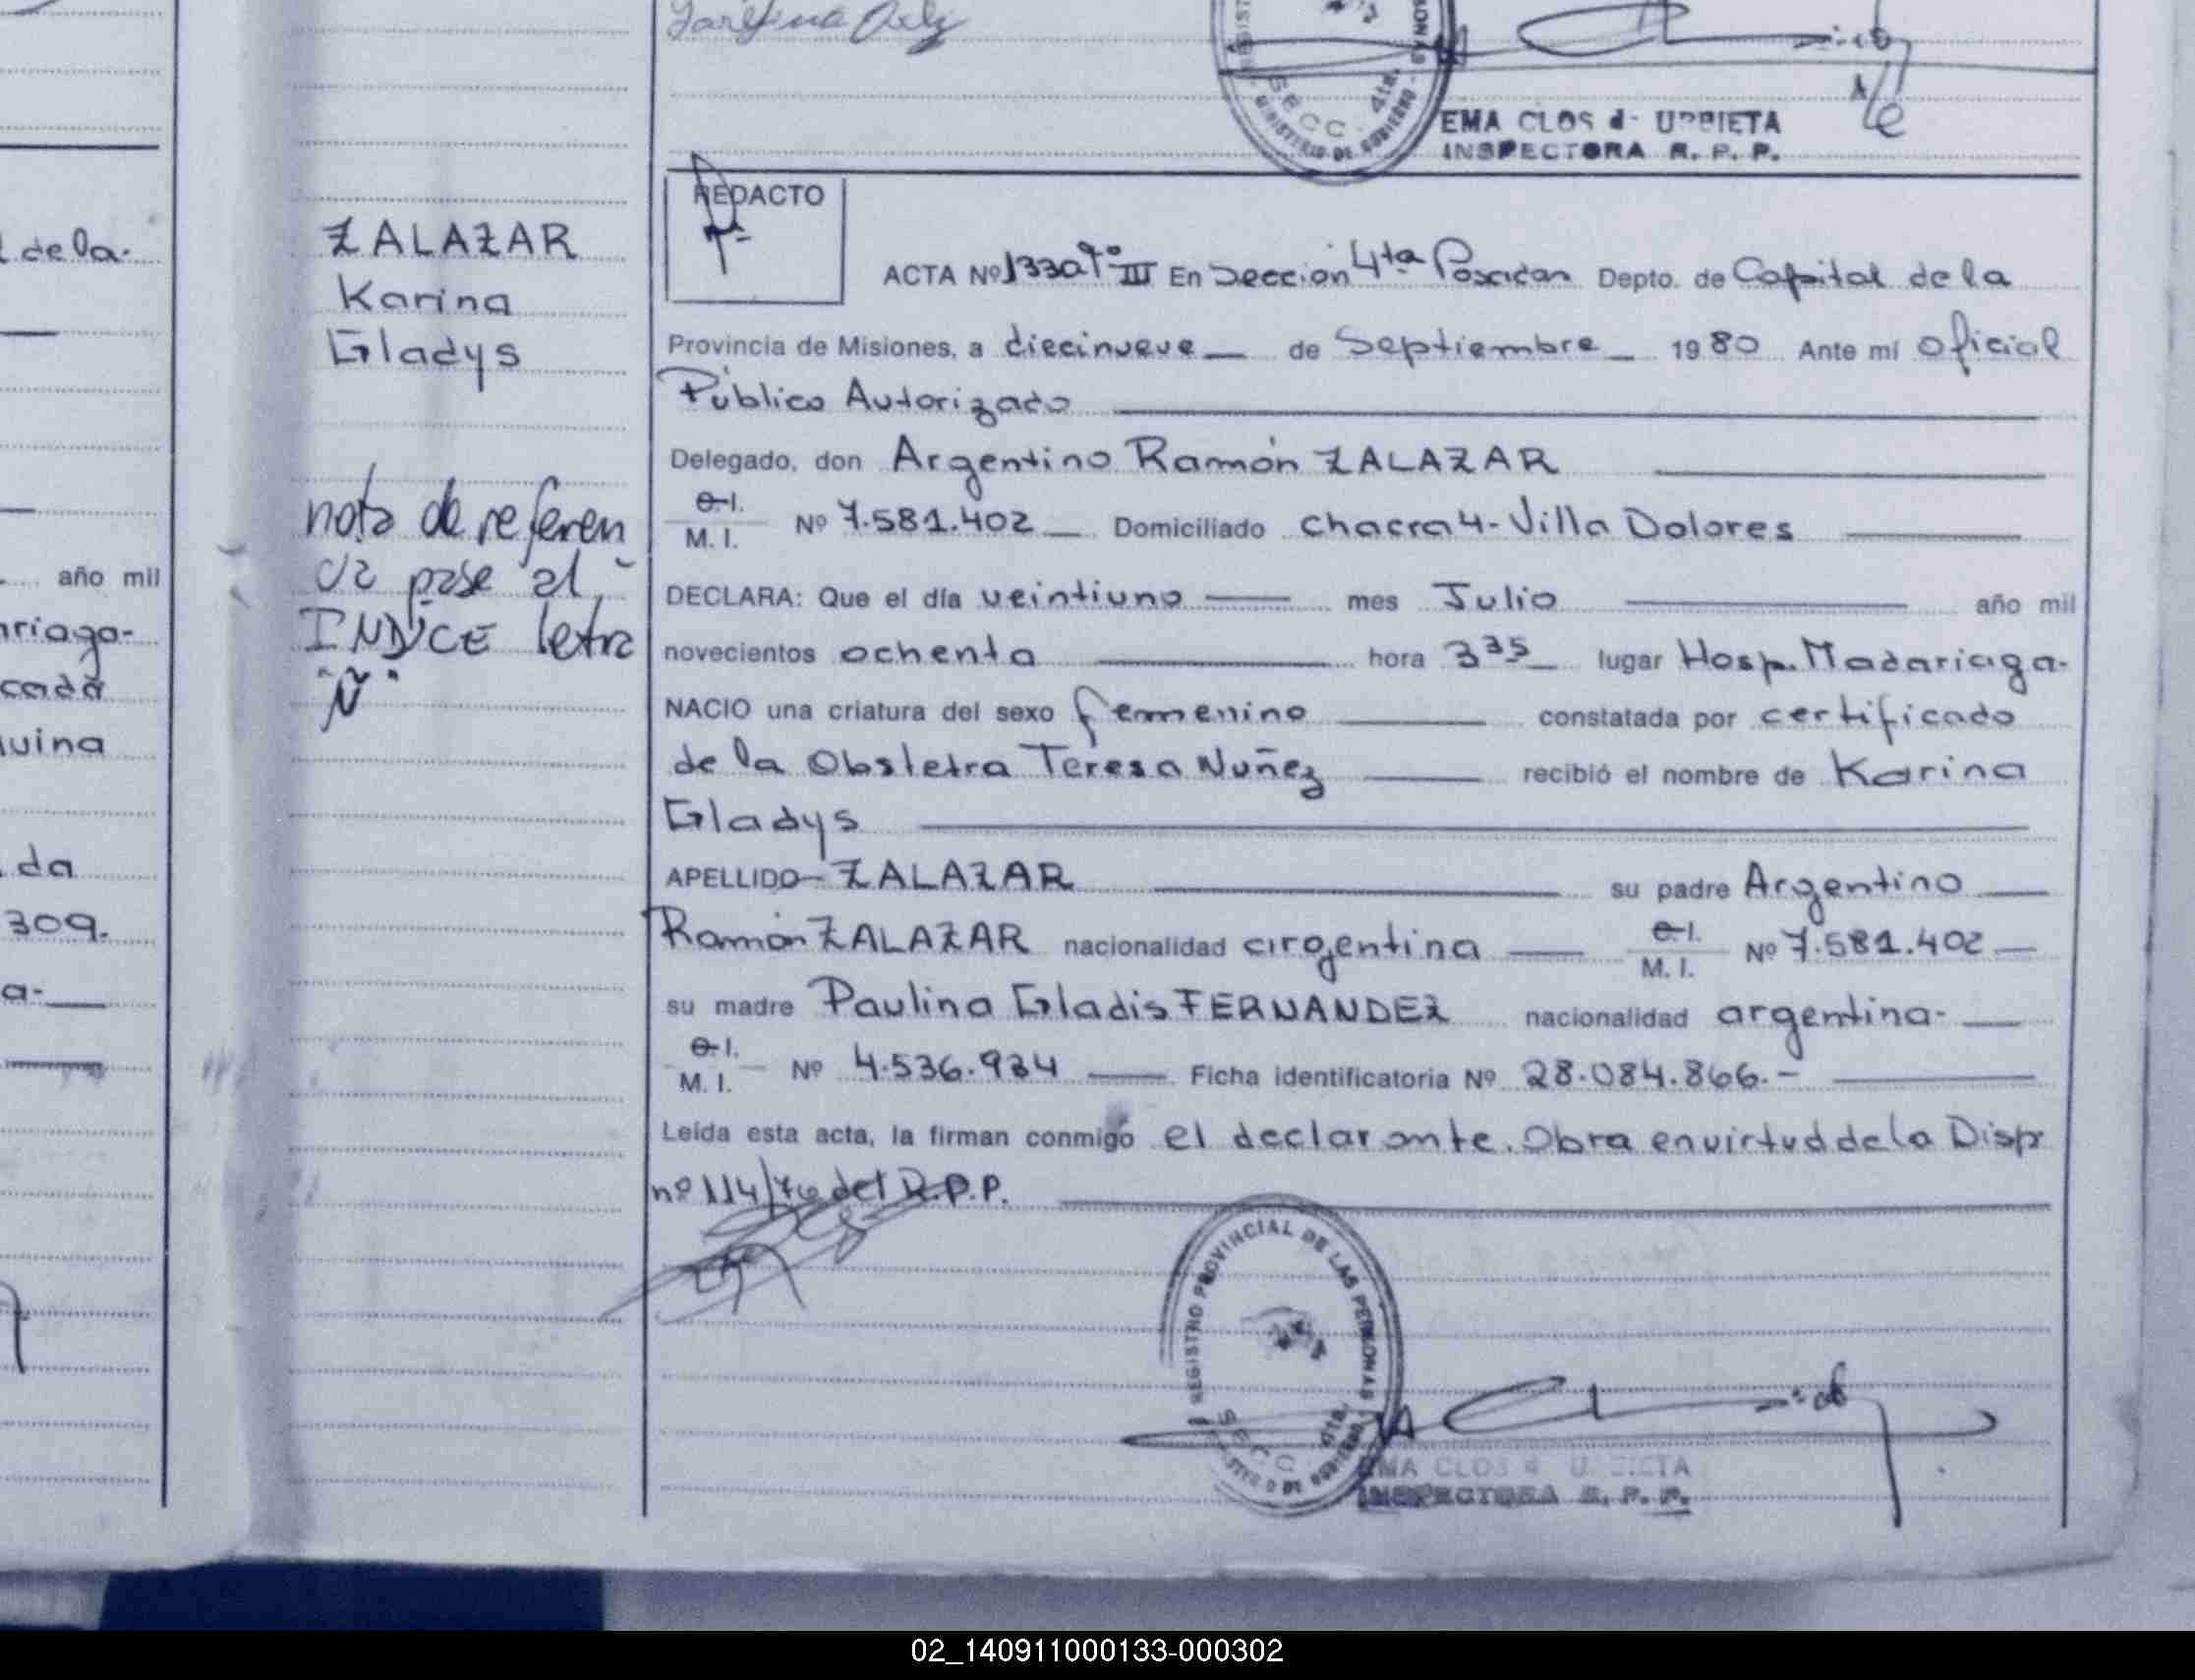 EMA CLOS d- URRIETA
INSPECTORA R. P. P.
SECC. 4ta.
MINISTERIO DE GOBIERNO
REDACTO
ZALAZAR
Karina
Gladys
ACTA Nº 1330 Tº III En Seccion 4ta Posadas Depto. de Capital de la
Provincia de Misiones, a diecinueve — de Septiembre — 1980 Ante mí Oficial
Público Autorizado
Delegado, don Argentino Ramón ZALAZAR
C.I.
M. I. Nº 7.581.402 — Domiciliado chacra 4 - Villa Dolores
DECLARA: Que el día veintiuno — mes Julio — año mil
novecientos ochenta — hora 3 35 — lugar Hosp. Madariaga.
NACIO una criatura del sexo femenino — constatada por certificado
de la Obstetra Teresa Nuñez — recibió el nombre de Karina
Gladys
APELLIDO — ZALAZAR — su padre Argentino —
Ramón ZALAZAR nacionalidad argentina — C.I.
M. I. Nº 7.581.402 —
su madre Paulina Gladis FERNANDEZ nacionalidad argentina- —
C.I.
M. I. Nº 4.536.934 — Ficha identificatoria Nº 28.084.866.-
Leída esta acta, la firman conmigo el declarante. Obra en virtud de la Disp
nº 114/76 del R.P.P.
nota de referen
cia pase al
INDICE letra
"Ñ"
REGISTRO PROVINCIAL DE LAS PERSONAS
SECC. 4ta.
MINISTERIO DE GOBIERNO
EMA CLOS d U
INSPECTORA R. P. P.
de la.
año mil
riaga-
cada
uina
da
309.
a-
02_140911000133-000302